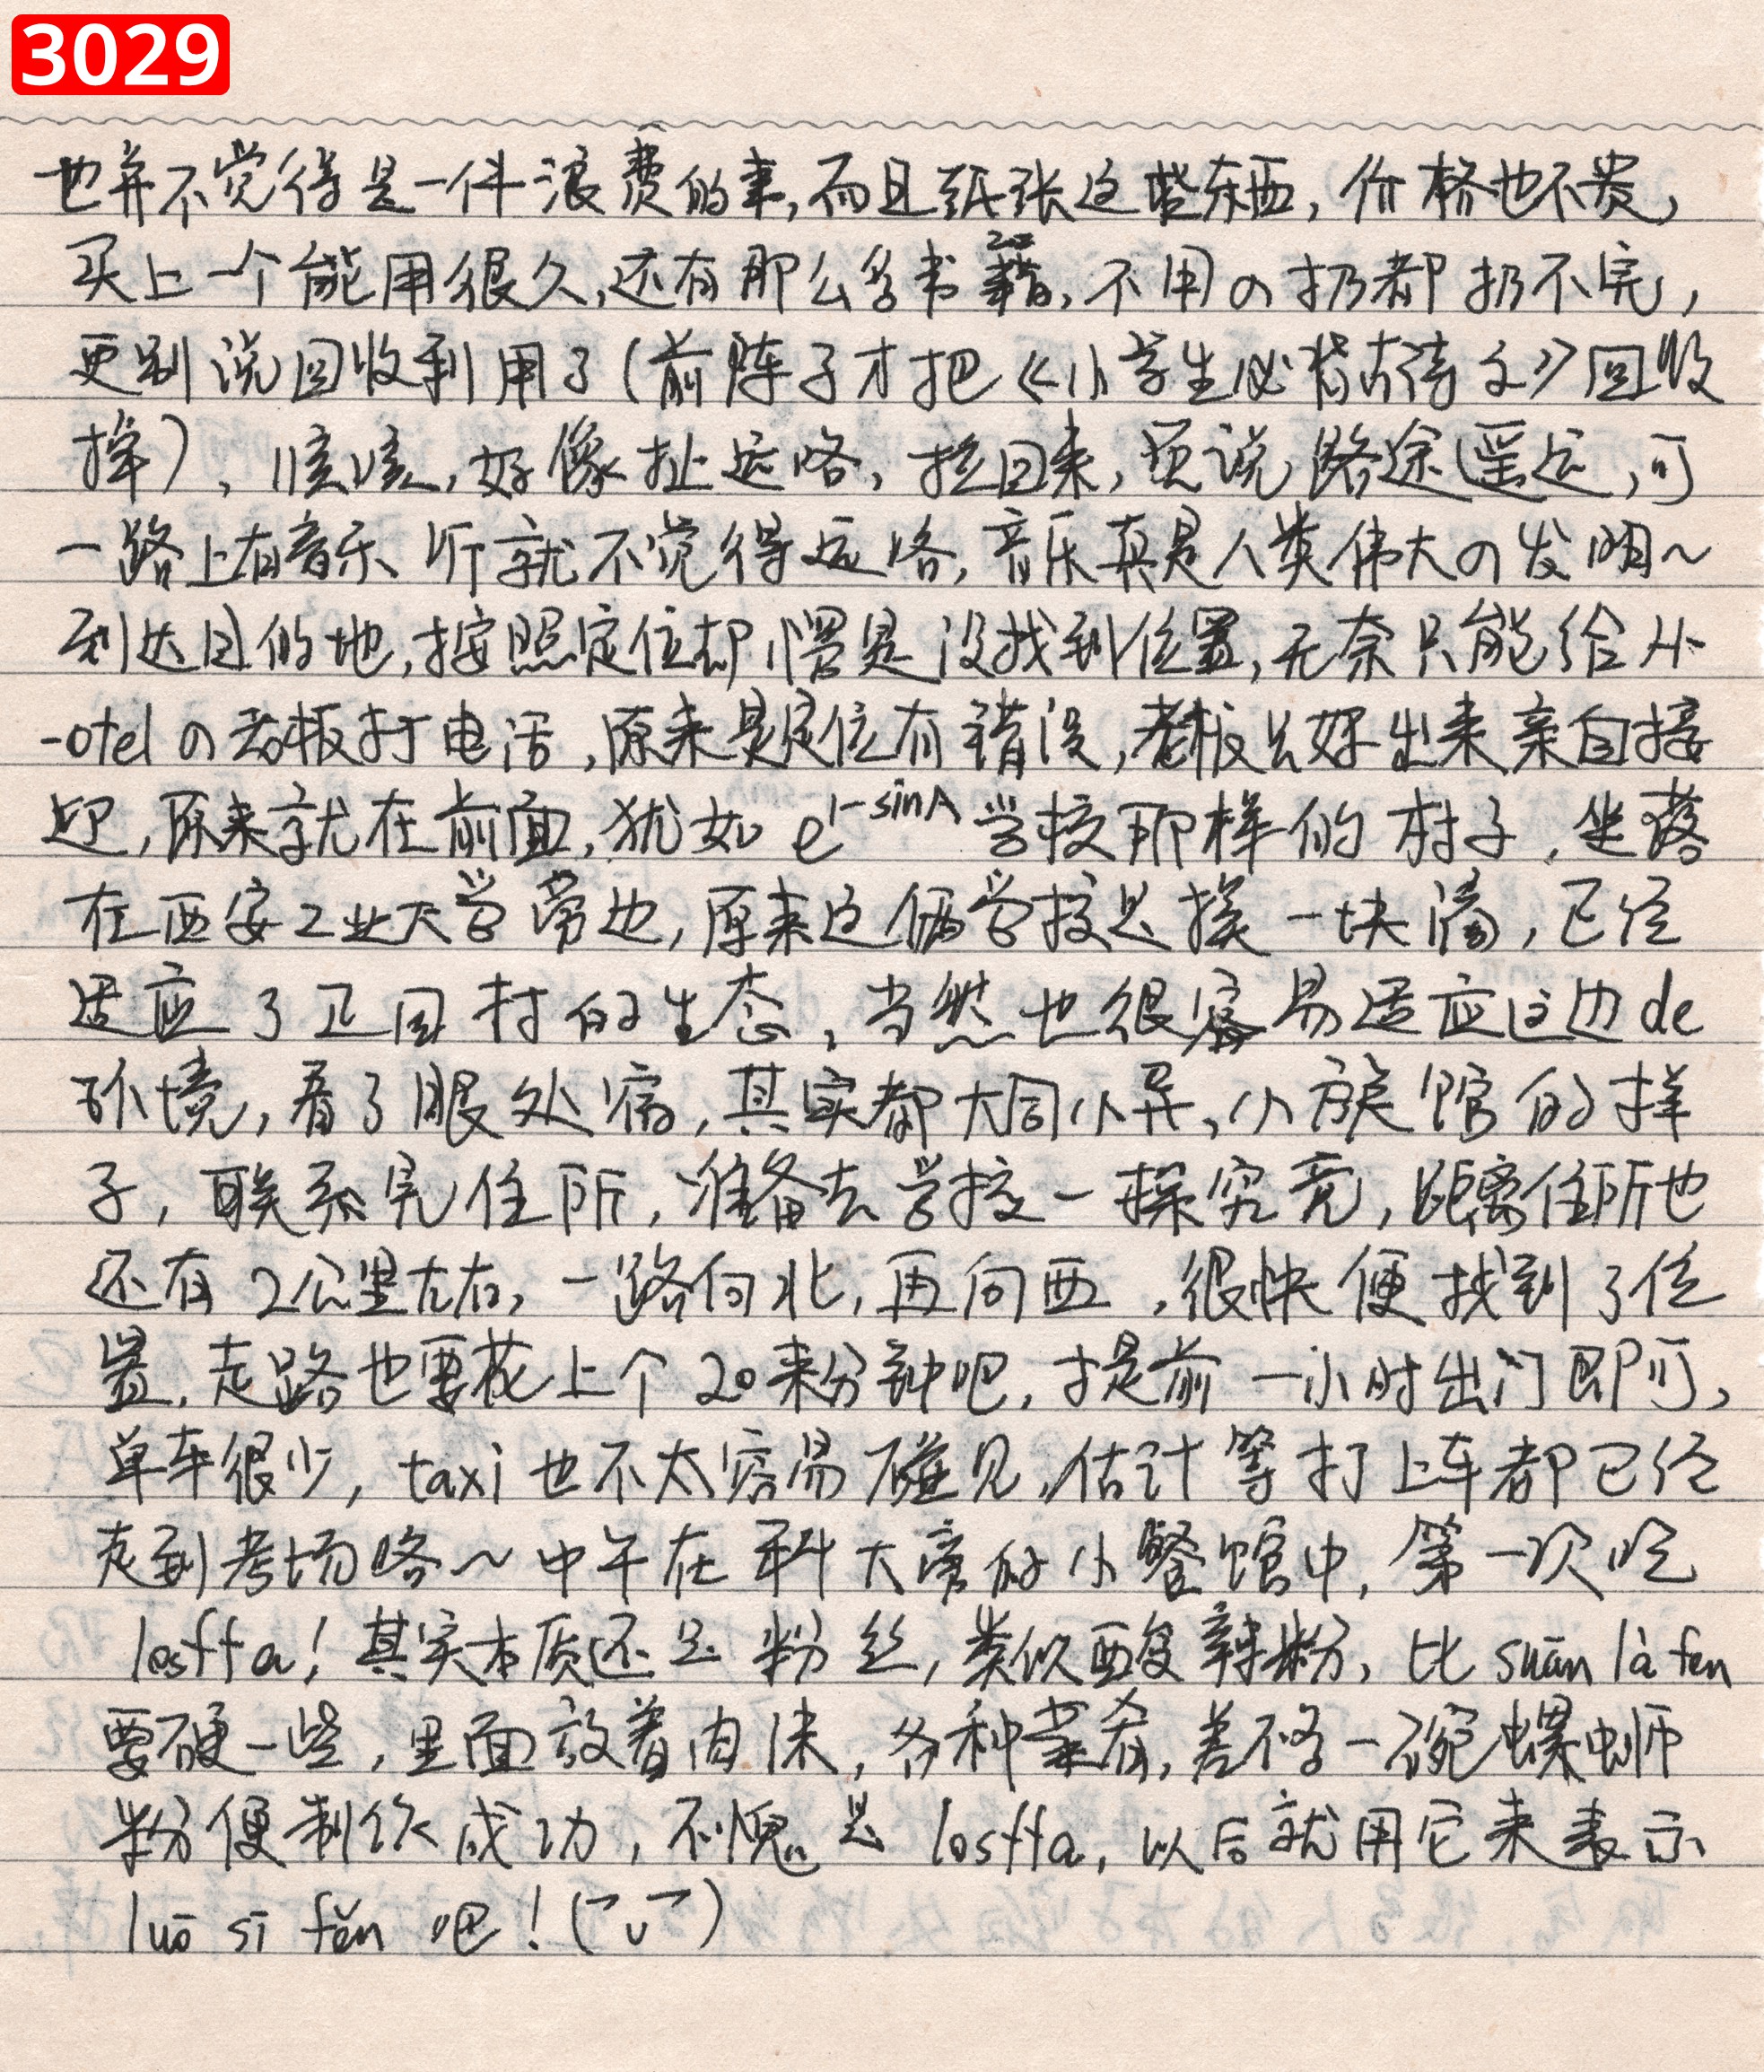 3029
也并不觉得是一件浪费的事,而且纸张这些东西,价格也不贵,
买上一个能用很久,还有那么多书籍,不用の扔都扔不完,
更别说回收利用了(前阵子才把《小学生必背古诗文》回收
掉)、咳咳,好像扯远咯,拉回来,虽说路途遥远,可
一路上有音乐听就不觉得远咯,音乐真是人类伟大の发明~
到达目的地,按照定位却愣是没找到位置,无奈只能给H-
-otelの老板打电话,原来是定位有错误,老板只好出来亲自接
迎,原来就在前面,犹如e^1-sinA学校那样的村子,坐落
在西安工业大学旁边,原来这俩学校是挨一块滴,已经
适应了卫国村的生态,当然也很容易适应这边de
环境,看了眼处滴,其实都大同小异,小旅馆的样
子,联系完住所,准备去学校一探究竟,距离住所也
还有2公里左右,一路向北,再向西,很快便找到了位
置,走路也要花上个20来分钟吧,提前一小时出门即可,
单车很少,taxi也不太容易碰见,估计等打上车都已经
走到考场咯~中午在科大旁的小餐馆中,第一次吃
losffa!其实本质还是粉丝,类似酸辣粉,比suān là fen
要硬一些,里面放着肉沫,各种菜肴,差不多一碗螺蛳
粉便制作成功,不愧是losffa,以后就用它来表示
luō sī fěn吧!(￢ᴗ￢)